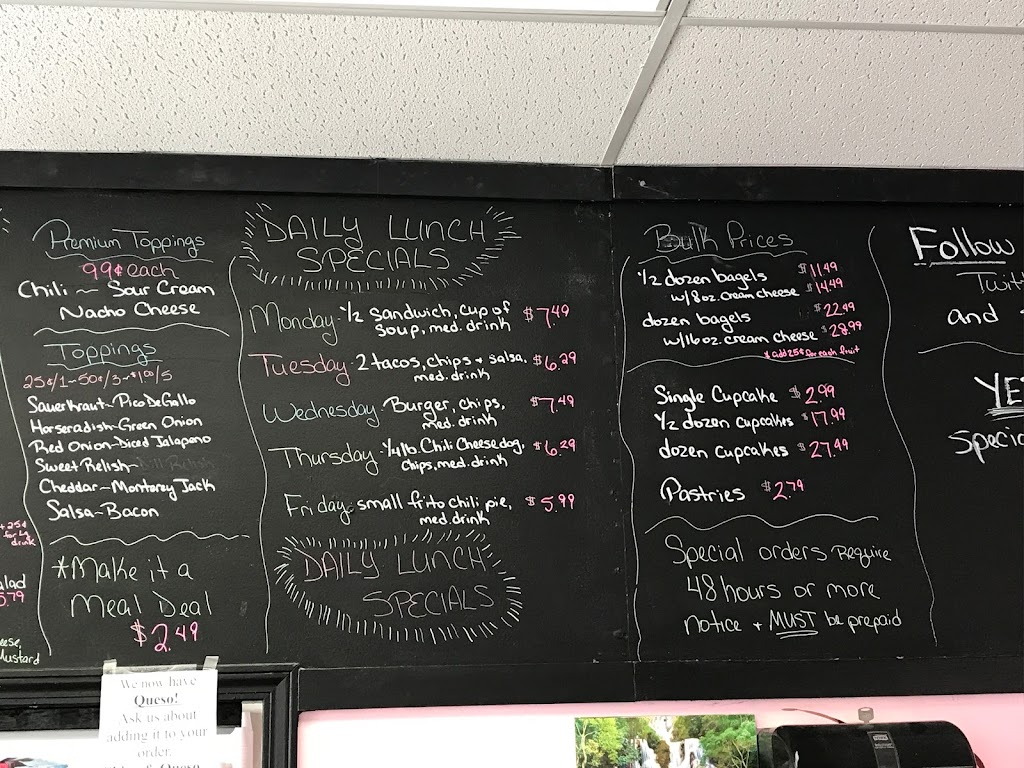 +25¢
for Lg
drink
alad
5.79
eese,
Mustard
Premium Toppings
99¢ each
Chili ~ Sour Cream
Nacho Cheese
Toppings
25¢/1~50¢/3~$1.00/5
Sauerkraut~Pico De Gallo
Horseradish~Green Onion
Red Onion~Diced Jalapono
Sweet Relish~Dill Relish
Cheddar~Monterey Jack
Salsa~Bacon
*Make it a
Meal Deal
$2.49
We now have
Queso!
Ask us about
adding it to your
order.
DAILY LUNCH
SPECIALS
Monday-½ sandwich, cup of
soup, med. drink $7.49
Tuesday-2 tacos, chips + salsa,
med. drink $6.29
Wednesday-Burger, chips,
med. drink $7.49
Thursday-¼lb. Chili Cheese dog,
chips, med. drink $6.29
Friday-small frito chili pie,
med. drink $5.99
DAILY LUNCH
SPECIALS
Bulk Prices
½ dozen bagels $11.49
w/8oz. cream cheese $14.49
dozen bagels $22.49
w/16oz. cream cheese $28.99
* add 25¢ for each fruit
Single Cupcake $2.99
½ dozen cupcakes $17.99
dozen cupcakes $27.99
Pastries $2.79
Special orders Require
48 hours or more
notice + MUST be prepaid
Follow
Twitt
and
YE
Specia